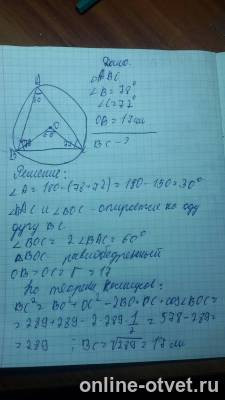 Дано:
△ABC
∠B = 78°
∠C = 72°
OB = 17 см
BC - ?
A
O
78
72
Решение:
∠A = 180-(78+72) = 180-150 = 30°
∠BAC и ∠BOC - опирается на одну
дугу BC.
∠BOC = 2∠BAC = 60°
△BOC равнобедренный
OB = OC = R = 17
По теореме косинусов:
BC² = BO² + OC² - 2BO·OC·cos∠BOC =
= 289+289-2·289·1/2 = 578-289=
= 289 ; BC = √289 = 17 см
online-otvet.ru